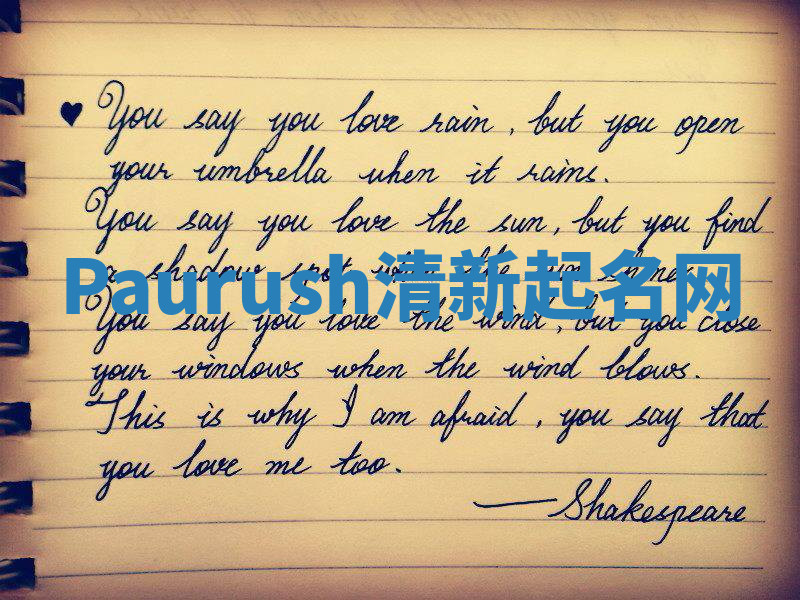 ♥ You say you love rain, but you open
your umbrella when it rains.
You say you love the sun, but you find
a shadow spot when the sun shines.
Paurush清新起名网
You say you love the wind, but you close
your windows when the wind blows.
This is why I am afraid, you say that
you love me too.
—Shakespeare